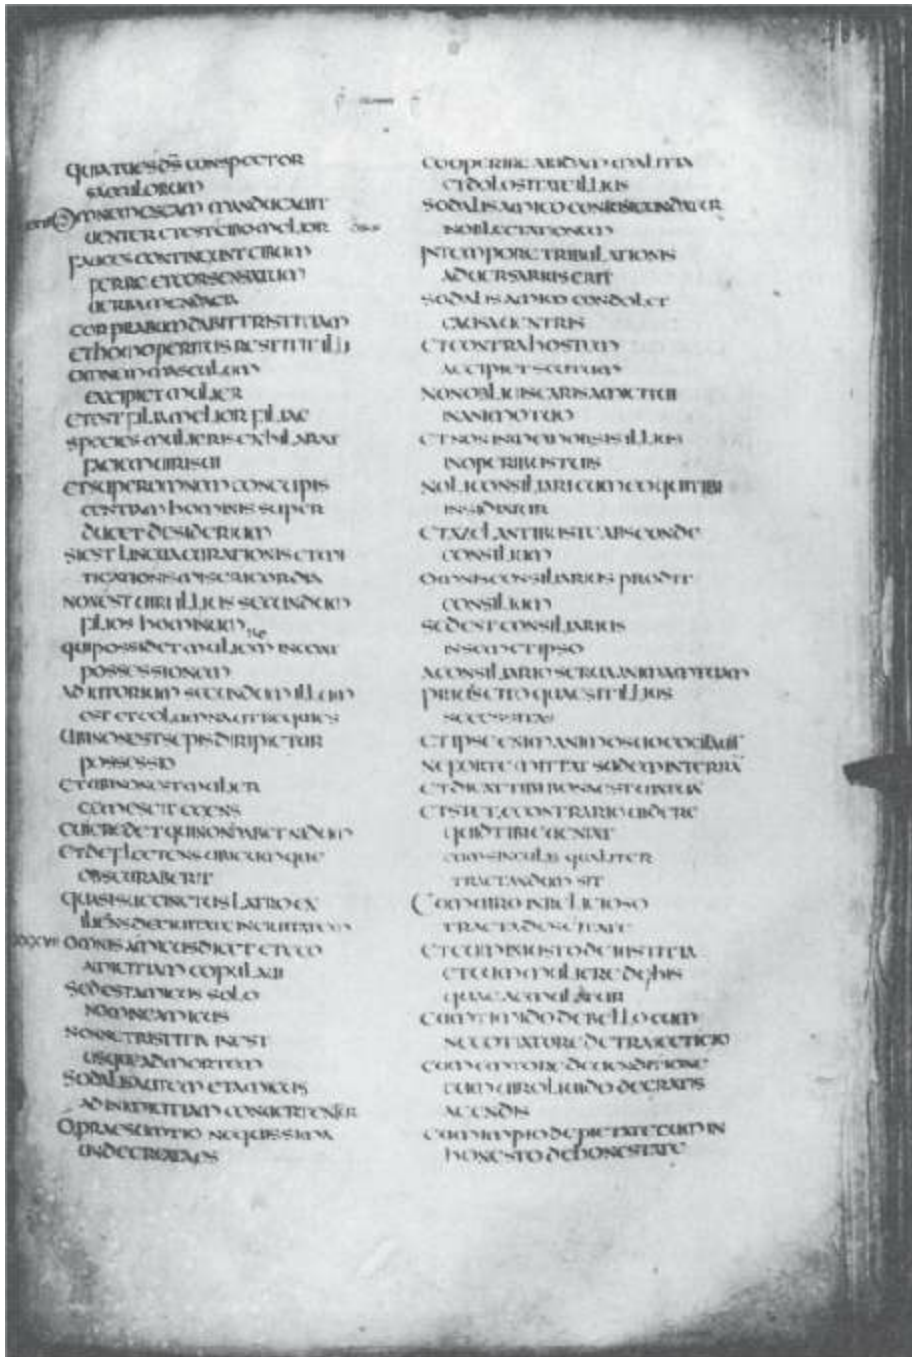 QUIA TU ES D̄S CONSPECTOR
SAECULORUM
OMNEM ESCAM MANDUCAUIT
UENTER ET EST CIBO MELIOR
FAUCES CONTINGUNT CIBUM
UERBA MENDACIA
COR PRAUUM DABIT TRISTITIAM
ET HOMO PERITUS RESISTIT ILLI
OMNEM MASCULUM
EXCIPIET MULIER
ET EST FILIA MELIOR FILIAE
SPECIES MULIERIS EXHILARAT
FACIEM UIRI SUI
ET SUPER OMNEM CONCUPIS
CENTIAM HOMINIS SUPER
DUCET DESIDERIUM
SI EST LINGUA CURATIONIS ET MI
TIGATIONIS MISERICORDIA
NON EST UIR ILLIUS SECUNDUM
FILIOS HOMINUM
QUI POSSIDET MULIEREM INCOAT
POSSESSIONEM
ADIUTORIUM SECUNDUM ILLUM
EST ET COLUMNA UT REQUIES
UBI NON EST SEPIS DIRIPIETUR
POSSESSIO
ET UBI NON EST MULIER
GEMESCIT EGENS
CUI CREDET QUI NON HABET NIDUM
ET DEFLECTENS UBICUMQUE
OBSCURABERIT
QUASI SUCCINCTUS LATRO EX
ILIENS DE CIUITATE IN CIUITATEM
XXXVII OMNIS AMICUS DICET ET EGO
AMICITIAM COPULAUI
SED EST AMICUS SOLO
NOMINE AMICUS
NONNE TRISTITIA INEST
USQUE AD MORTEM
SODALIS AUTEM ET AMICUS
AD INIMICITIAM CONUERTENTUR
O PRAESUMTIO NEQUISSIMA
UNDE CREATA ES
COOPERIRE ARIDAM MALITIA
ET DOLOSITATE ILLIUS
SODALIS AMICO CONIUCUNDATUR
IN OBLECTATIONEM
IN TEMPORE TRIBULATIONIS
ADUERSARIUS ERIT
SODALIS AMICO CONDOLET
CAUSA UENTRIS
ET CONTRA HOSTEM
ACCIPIET SCUTUM
NON OBLIUISCARIS AMICI TUI
IN ANIMO TUO
ET NON INMEMOR SIS ILLIUS
IN OPERIBUS TUIS
NOLI CONSILIARI CUM EO QUI TIBI
INSIDIATUR
ET A ZELANTIBUS TE ABSCONDE
CONSILIUM
OMNIS CONSILIARIUS PRODIT
CONSILIUM
SED EST CONSILIARIUS
IN SEMETIPSO
A CONSILIARIO SERUA ANIMAM TUAM
PRIUS SCITO QUAE SIT ILLIUS
NECESSITAS
ET IPSE ENIM ANIMO SUO COGITAUIT
NE FORTE MITTAT SUDEM IN TERRA
ET DICAT TIBI BONA EST UIA TUA
ET STET E CONTRARIO UIDERE
QUID TIBI EUENIAT
QUALITER
TRACTANDUM SIT
CUM UIRO INRELIGIOSO
TRACTA DE SCITATE
ET CUM INIUSTO DE IUSTITIA
ET CUM MULIERE DE HIS
QUAE AEMULATUR
CUM TIMIDO DE BELLO CUM
NEGOTIATORE DE TRAIECTICIO
CUM EMTORE DE UENDITIONE
CUM UIRO LIUIDO DE GRATIIS
AGENDIS
CUM IMPIO DE PIETATE CUM IN
HONESTO DE HONESTATE